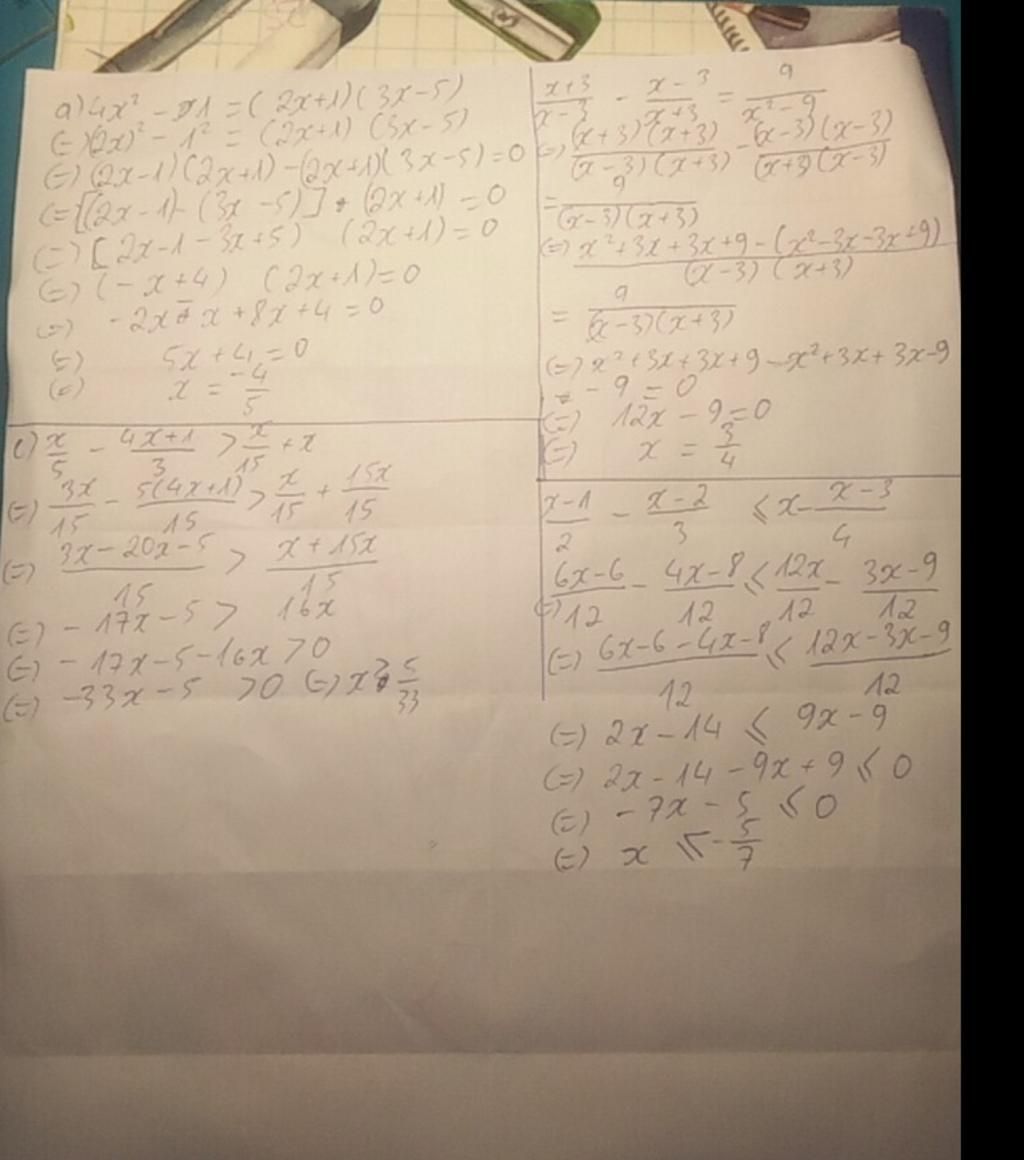 a) 4x² - 1 = (2x+1)(3x-5)
(=) (2x)² - 1² = (2x+1)(3x-5)
(=) (2x-1)(2x+1) - (2x+1)(3x-5) = 0
(= [(2x-1) - (3x-5)] . (2x+1) = 0
(=) [2x-1-3x+5) (2x+1) = 0
(=) (-x+4) (2x+1) = 0
(=) -2x - x + 8x + 4 = 0
(=) 5x + 4 = 0
(=) x = -4/5
x+3/x-3 - x-3/x+3 = 9/x²-9
(=) (x+3)(x+3)/(x-3)(x+3) - (x-3)(x-3)/(x+3)(x-3)
= 9/(x-3)(x+3)
(=) x²+3x+3x+9-(x²-3x-3x+9)/(x-3)(x+3)
= 9/(x-3)(x+3)
(=) x²+3x+3x+9-x²+3x+3x-9
-9 = 0
(=) 12x - 9 = 0
(=) x = 3/4
c) x/5 - 4x+1/3 > x/15 + x
(=) 3x/15 - 5(4x+1)/15 > x/15 + 15x/15
(=) 3x-20x-5/15 > x+15x/15
(=) -17x-5 > 16x
(=) -17x-5-16x > 0
(=) -33x-5 > 0 (=) x > 5/33
x-1/2 - x-2/3 ≤ x - x-3/4
(=) 6x-6/12 - 4x-8/12 ≤ 12x/12 - 3x-9/12
(=) 6x-6-4x-8/12 ≤ 12x-3x-9/12
(=) 2x-14 ≤ 9x-9
(=) 2x-14-9x+9 ≤ 0
(=) -7x-5 ≤ 0
(=) x ≤ -5/7